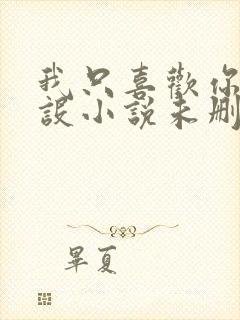 我只喜歡你
設小說未刪
畢夏